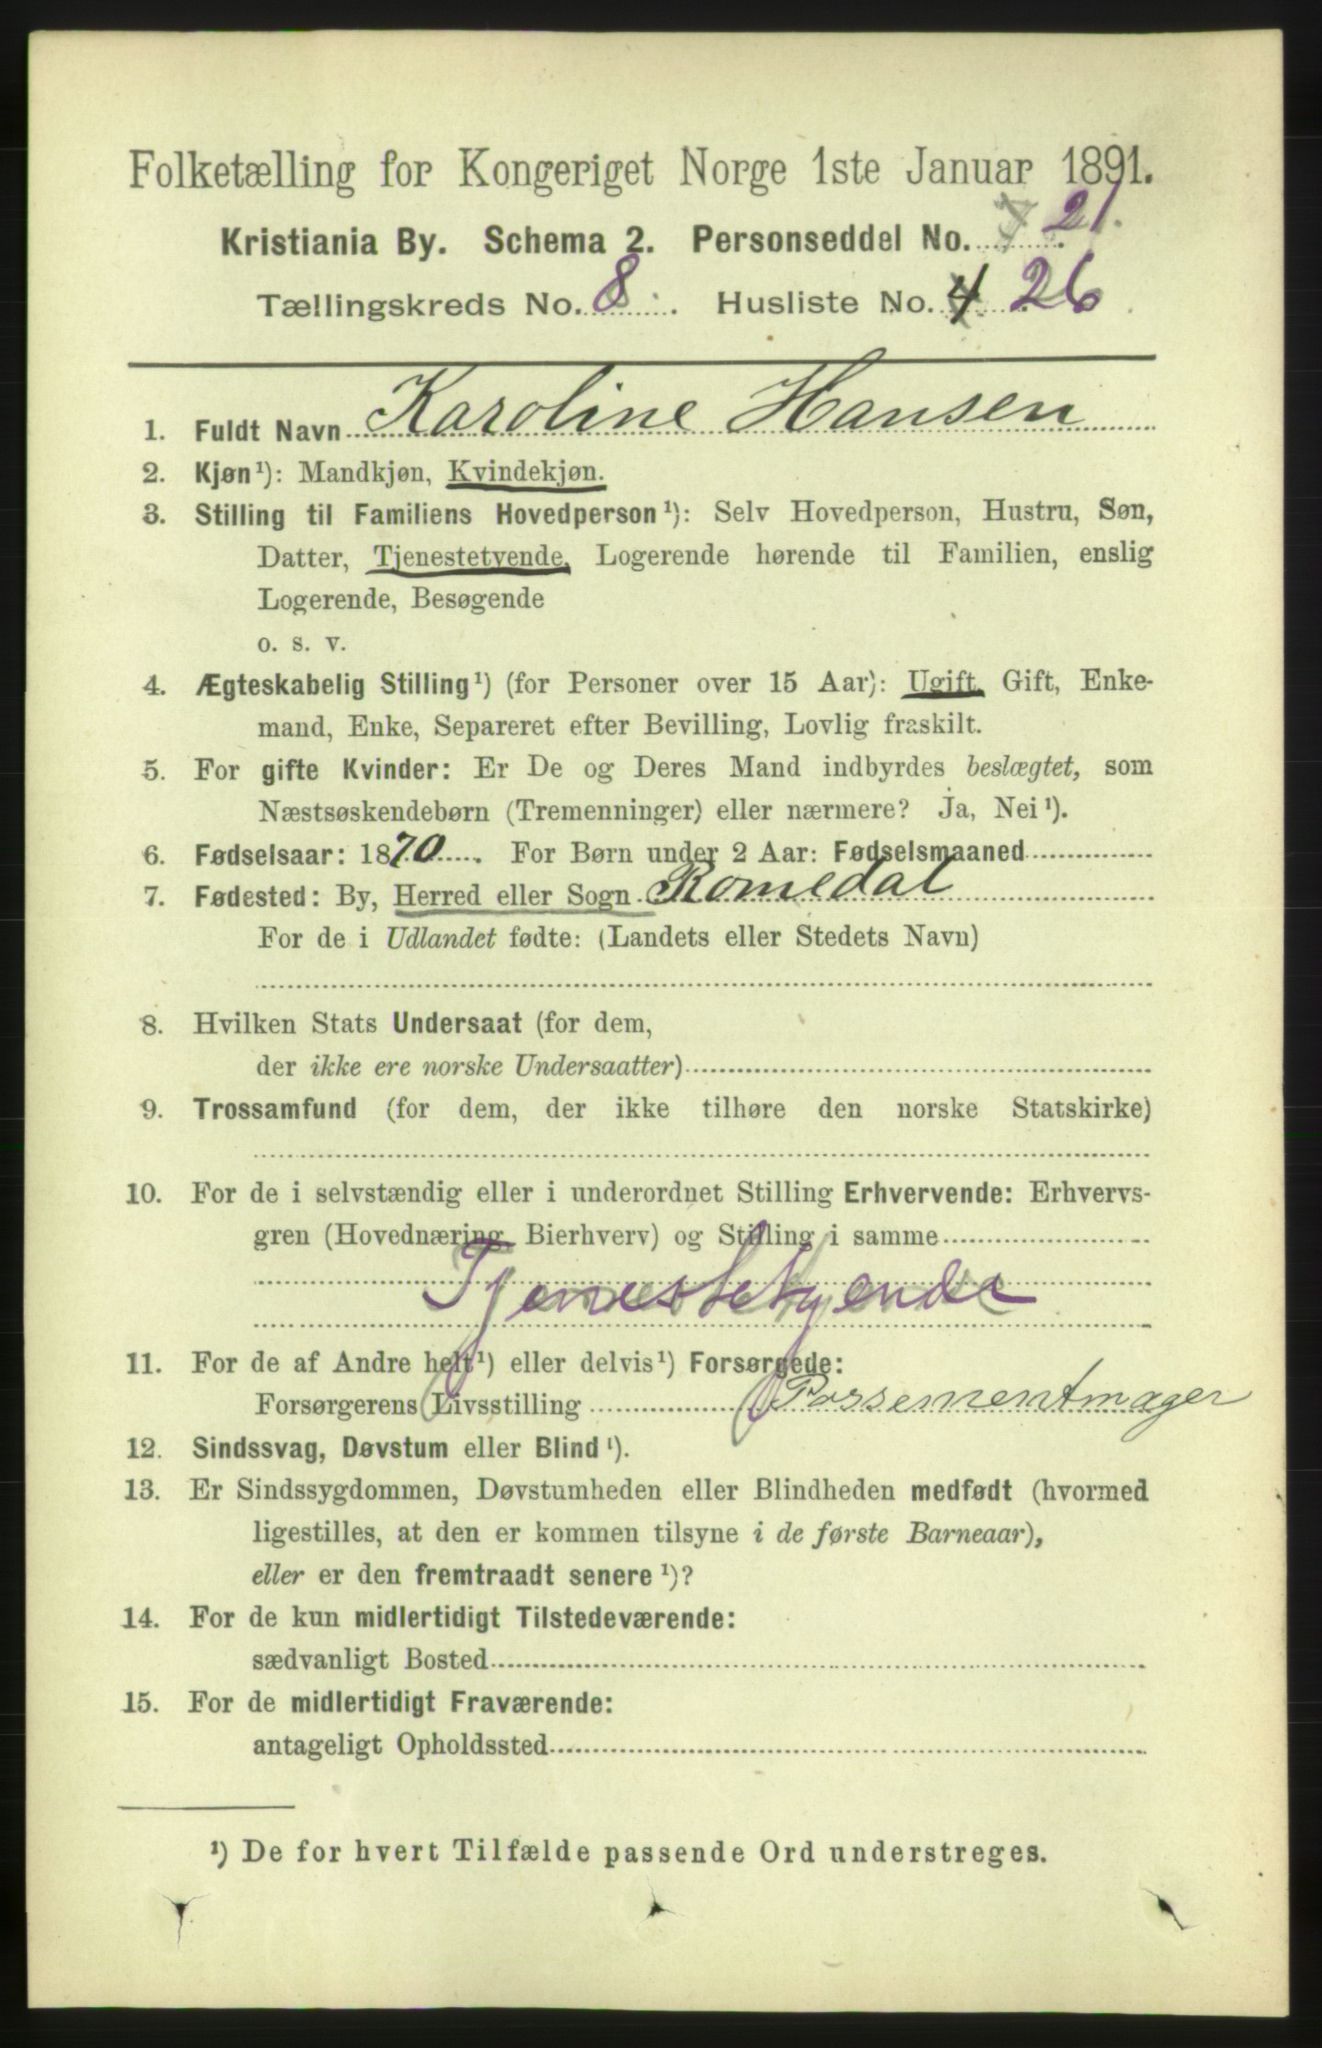 Folketælling for Kongeriget Norge 1ste Januar 1891.
Kristiania By. Schema 2. Personseddel No. 21.
Tællingskreds No. 8. Husliste No. 4 26
1. Fuldt Navn Karoline Hansen
2. Kjøn¹): Mandkjøn, Kvindekjøn.
3. Stilling til Familiens Hovedperson¹): Selv Hovedperson, Hustru, Søn,
Datter, Tjenestetyende, Logerende hørende til Familien, enslig
Logerende, Besøgende
o. s. v.
4. Ægteskabelig Stilling¹) (for Personer over 15 Aar): Ugift, Gift, Enke-
mand, Enke, Separeret efter Bevilling, Lovlig fraskilt.
5. For gifte Kvinder: Er De og Deres Mand indbyrdes beslægtet, som
Næstsøskendebørn (Tremenninger) eller nærmere? Ja, Nei¹).
6. Fødselsaar: 1870. For Børn under 2 Aar: Fødselsmaaned
7. Fødested: By, Herred eller Sogn Romedal
For de i Udlandet fødte: (Landets eller Stedets Navn)
8. Hvilken Stats Undersaat (for dem,
der ikke ere norske Undersaatter)
9. Trossamfund (for dem, der ikke tilhøre den norske Statskirke)
10. For de i selvstændig eller i underordnet Stilling Erhvervende: Erhvervs-
gren (Hovednæring, Bierhverv) og Stilling i samme
Tjenestetyende
11. For de af Andre helt¹) eller delvis¹) Forsørgede:
Forsørgerens Livsstilling Possementmager
12. Sindssvag, Døvstum eller Blind¹).
13. Er Sindssygdommen, Døvstumheden eller Blindheden medfødt (hvormed
ligestilles, at den er kommen tilsyne i de første Barneaar),
eller er den fremtraadt senere¹)?
14. For de kun midlertidigt Tilstedeværende:
sædvanligt Bosted
15. For de midlertidigt Fraværende:
antageligt Opholdssted
¹) De for hvert Tilfælde passende Ord understreges.